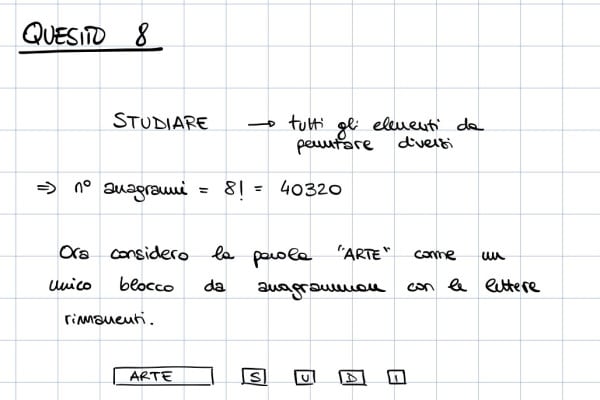 QUESITO 8
STUDIARE → tutti gli elementi da
permutare diversi
⇒ n° anagrammi = 8! = 40320
Ora considero la parola "ARTE" come un
unico blocco da anagrammare con le lettere
rimanenti.
ARTE S U D I